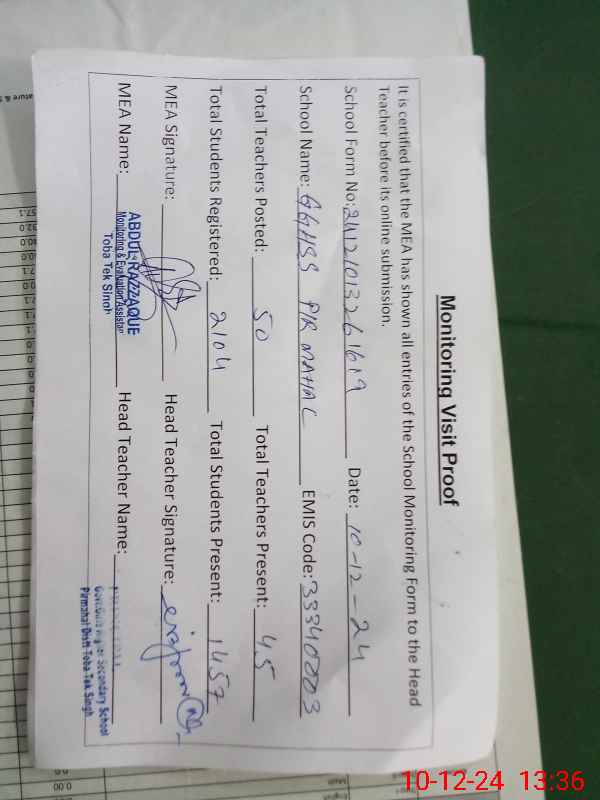 Monitoring Visit Proof
It is certified that the MEA has shown all entries of the School Monitoring Form to the Head
Teacher before its online submission.
School Form No: 241210133261619 Date: 10-12-24
School Name: GGHSS PIR MAHAL EMIS Code: 33340003
Total Teachers Posted: 50 Total Teachers Present: 45
Total Students Registered: 2104 Total Students Present: 1457
MEA Signature: Head Teacher Signature:
MEA Name: ABDUL RAZZAQUE Head Teacher Name:
Monitoring & Evaluation Assistant
Toba Tek Singh
Govt.Girls Higher Secondary School
Pirmahal Distt Toba Tek Singh
10-12-24 13:36